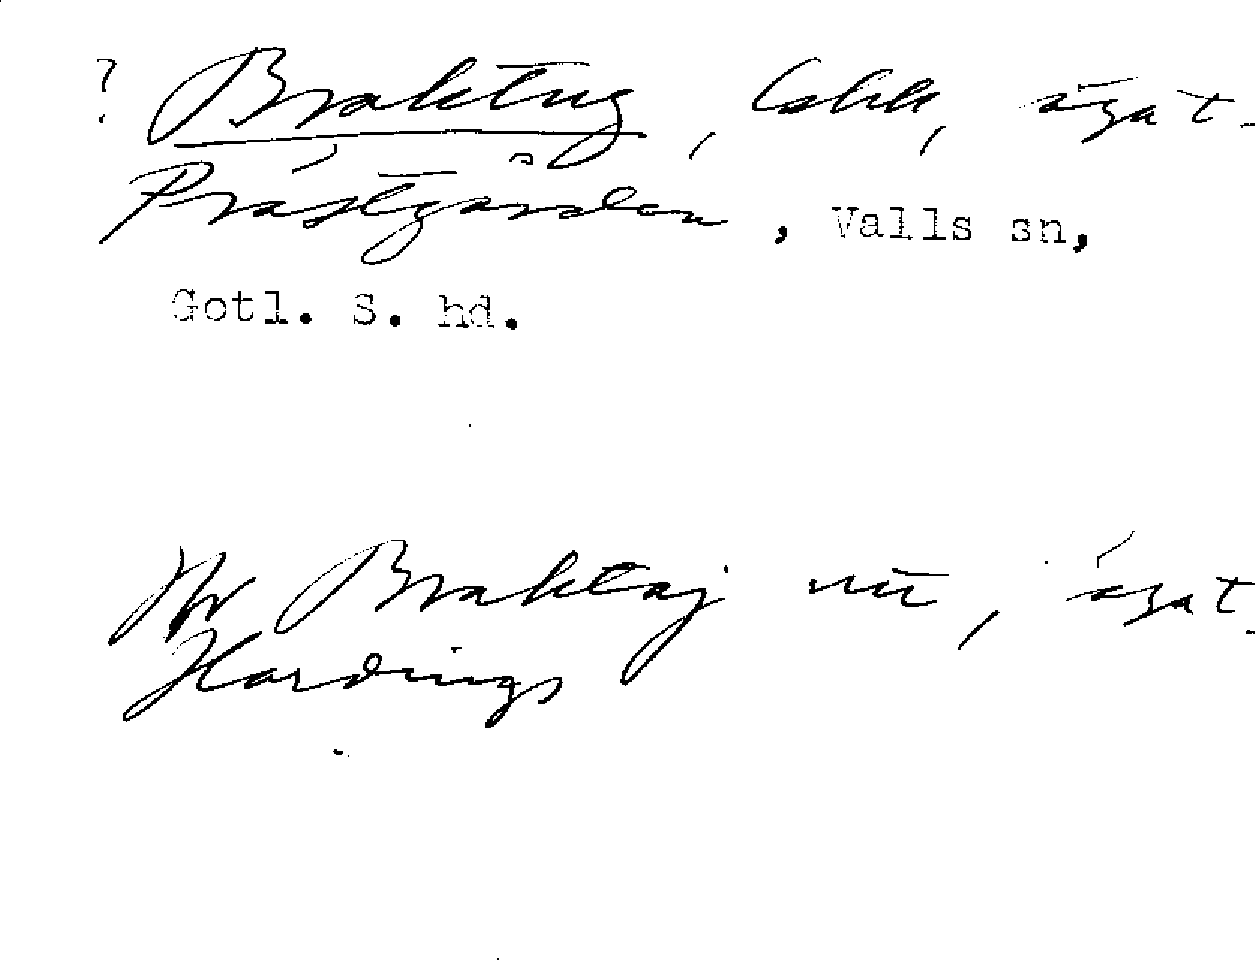 ? Braktug, lokk, ägat.
Prästgården, Valls sn,
Gotl. S. hd.
Braktaj nu, ägat.
Hardings